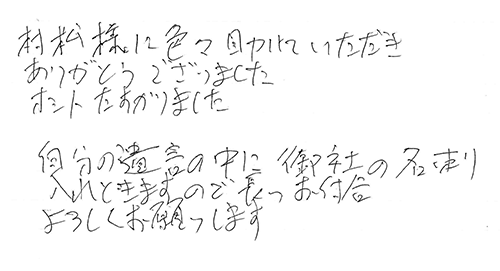 村松様に色々助けていただき
ありがとうございました
ホントたすかりました
自分の遺言の中に御社の名刺
入れときますので長いお付合
よろしくお願いします